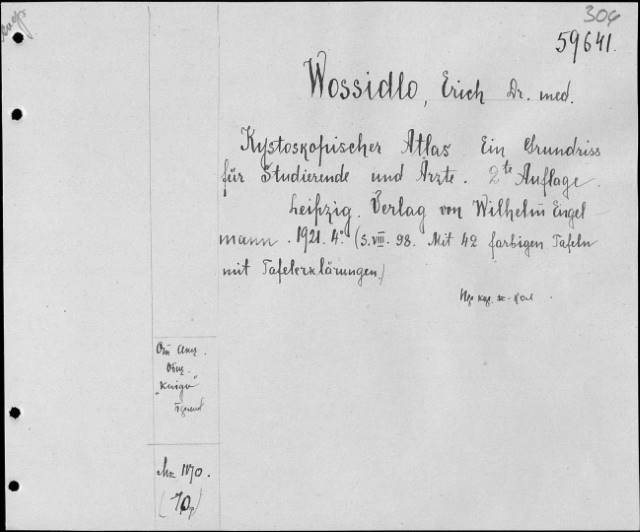 304
59641.
Wossidlo, Erich Dr. med.
Kystoskopischer Atlas Ein Grundriss
für Studierende und Ärzte. 2te Auflage.
Leipzig. Verlag von Wilhelm Engel
mann. 1921. 4°. (S. VIII. 98. Mit 42 farbigen Tafeln
mit Tafelerklärungen)
„Книга“
1170.